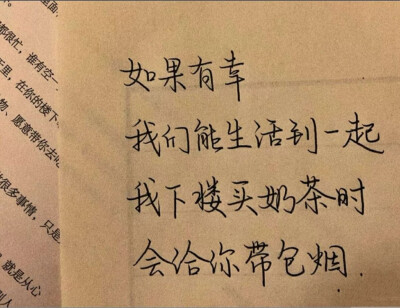 如果有幸
我们能生活到一起
我下楼买奶茶时
会给你带包烟.
都很忙，谁有空
在你的楼下
物、愿意带你去
很多事情，只是
就是从心